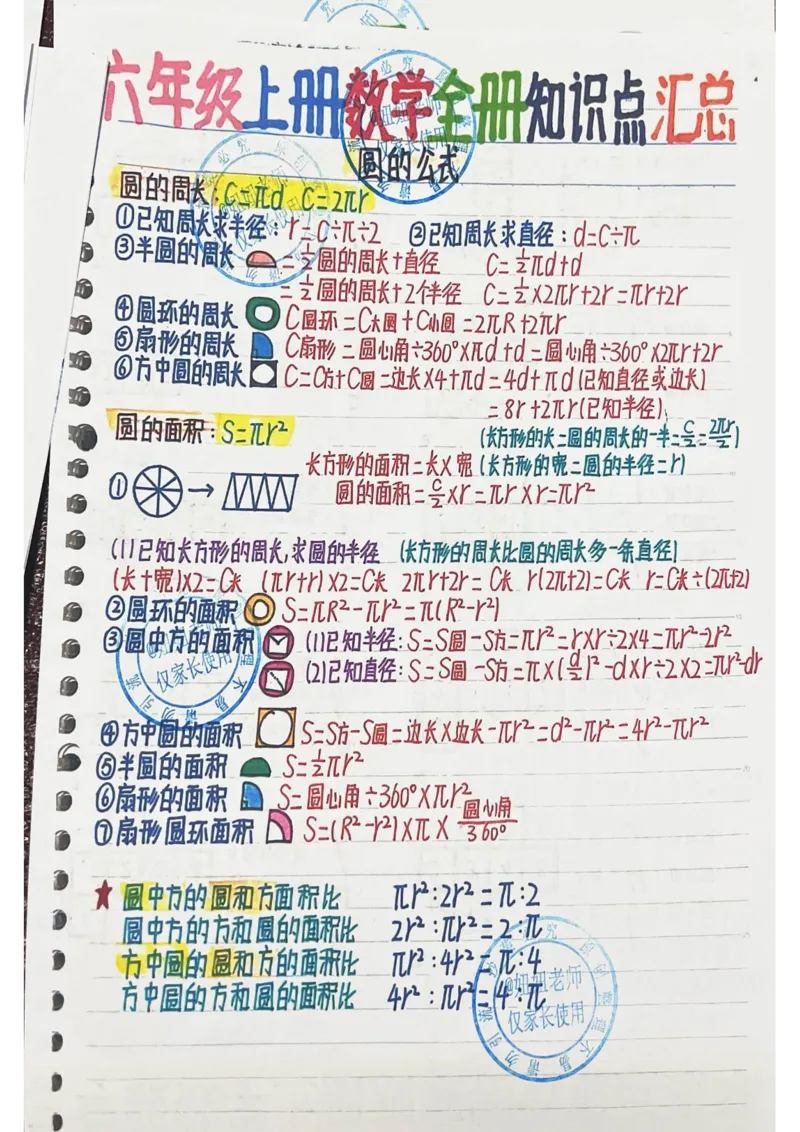 六年级上册数学全册知识点汇总
圆的公式
圆的周长：C=πd C=2πr
①已知周长求半径：r=C÷π÷2 ②已知周长求直径：d=C÷π
③半圆的周长 =½圆的周长+直径 C=½πd+d
=½圆的周长+2个半径 C=½×2πr+2r=πr+2r
④圆环的周长 C圆环=C大圆+C小圆=2πR+2πr
⑤扇形的周长 C扇形=圆心角÷360°×πd+d=圆心角÷360°×2πr+2r
⑥方中圆的周长 C=C方+C圆=边长×4+πd=4d+πd(已知直径或边长)
=8r+2πr(已知半径)
圆的面积：S=πr²
(长方形的长=圆的周长的一半=C/2=2πr/2)
长方形的面积=长×宽 (长方形的宽=圆的半径=r)
① → 圆的面积=C/2×r=πr×r=πr²
(1)已知长方形的周长,求圆的半径 (长方形的周长比圆的周长多一条直径)
(长+宽)×2=C长 (πr+r)×2=C长 2πr+2r=C长 r(2π+2)=C长 r=C长÷(2π+2)
②圆环的面积 S=πR²-πr²=π(R²-r²)
③圆中方的面积 (1)已知半径：S=S圆-S方=πr²-r×r÷2×4=πr²-2r²
(2)已知直径：S=S圆-S方=π×(d/2)²-d×r÷2×2=πr²-dr
④方中圆的面积 S=S方-S圆=边长×边长-πr²=d²-πr²=4r²-πr²
⑤半圆的面积 S=½πr²
⑥扇形的面积 S=圆心角÷360°×πr²
⑦扇形圆环面积 S=(R²-r²)×π×圆心角/360°
★ 圆中方的圆和方面积比 πr²:2r²=π:2
圆中方的方和圆的面积比 2r²:πr²=2:π
方中圆的圆和方的面积比 πr²:4r²=π:4
方中圆的方和圆的面积比 4r²:πr²=4:π
@妞妞老师
仅家长使用